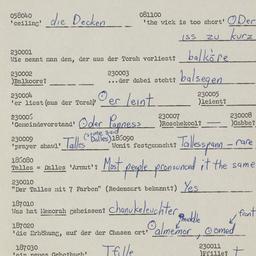 058040 081100
'ceiling' die Decken 'the wick is too short' Der
iss zu kurz
230001
Wie nennt man den, der aus der Torah vorliest? balkōre
230002 230003
Balkoore? ...der dabei steht? balsegen
230004 230005
'er liest (aus der Torah)' er leint leient?
230006 230007 230008
'Gemeindevorstand' der Parness Roschekool? — Gabbe?
230009 118090
'prayer shawl' Talles Womit festgemacht? Tallesspann — rare
186080
Talles = Dalles 'Armut'? Most people pronounced it the same
230010
"Der Talles mit 7 Farben" (Redensart bekannt?) Yes
187010
Was hat Menorah geheissen? Chanukeleuchter middle front
187020
'die Erhöhung, auf der der Chasen ort' almemor, omed
187030 230011
'ein neues Gebetbuch' Tfille Tfille? +